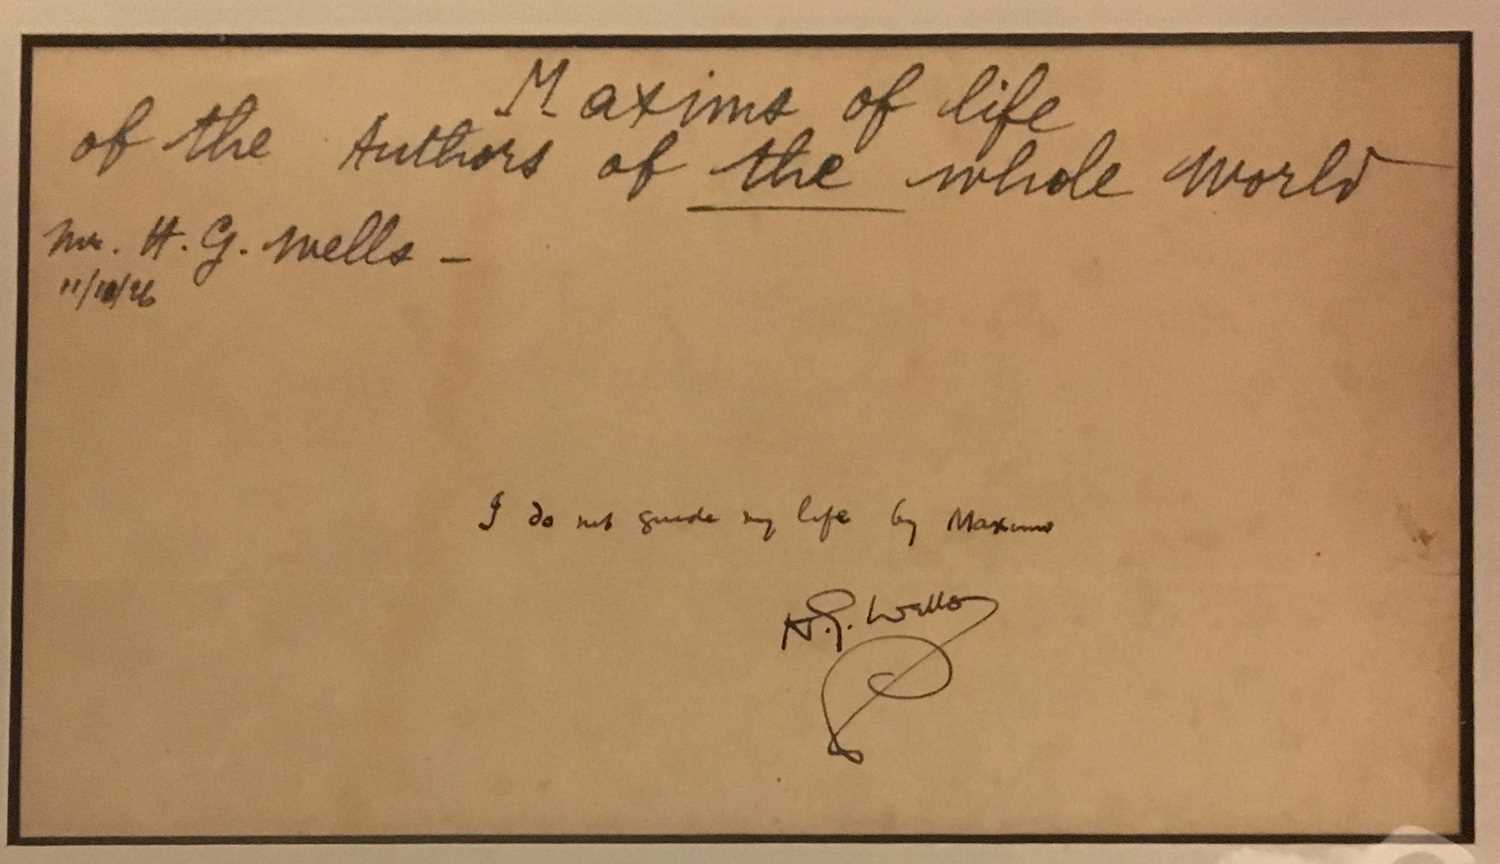 Maxims of life
of the Authors of the whole World
Mr. H. G. Wells –
I do not guide my life by Maxims
H.G. Wells